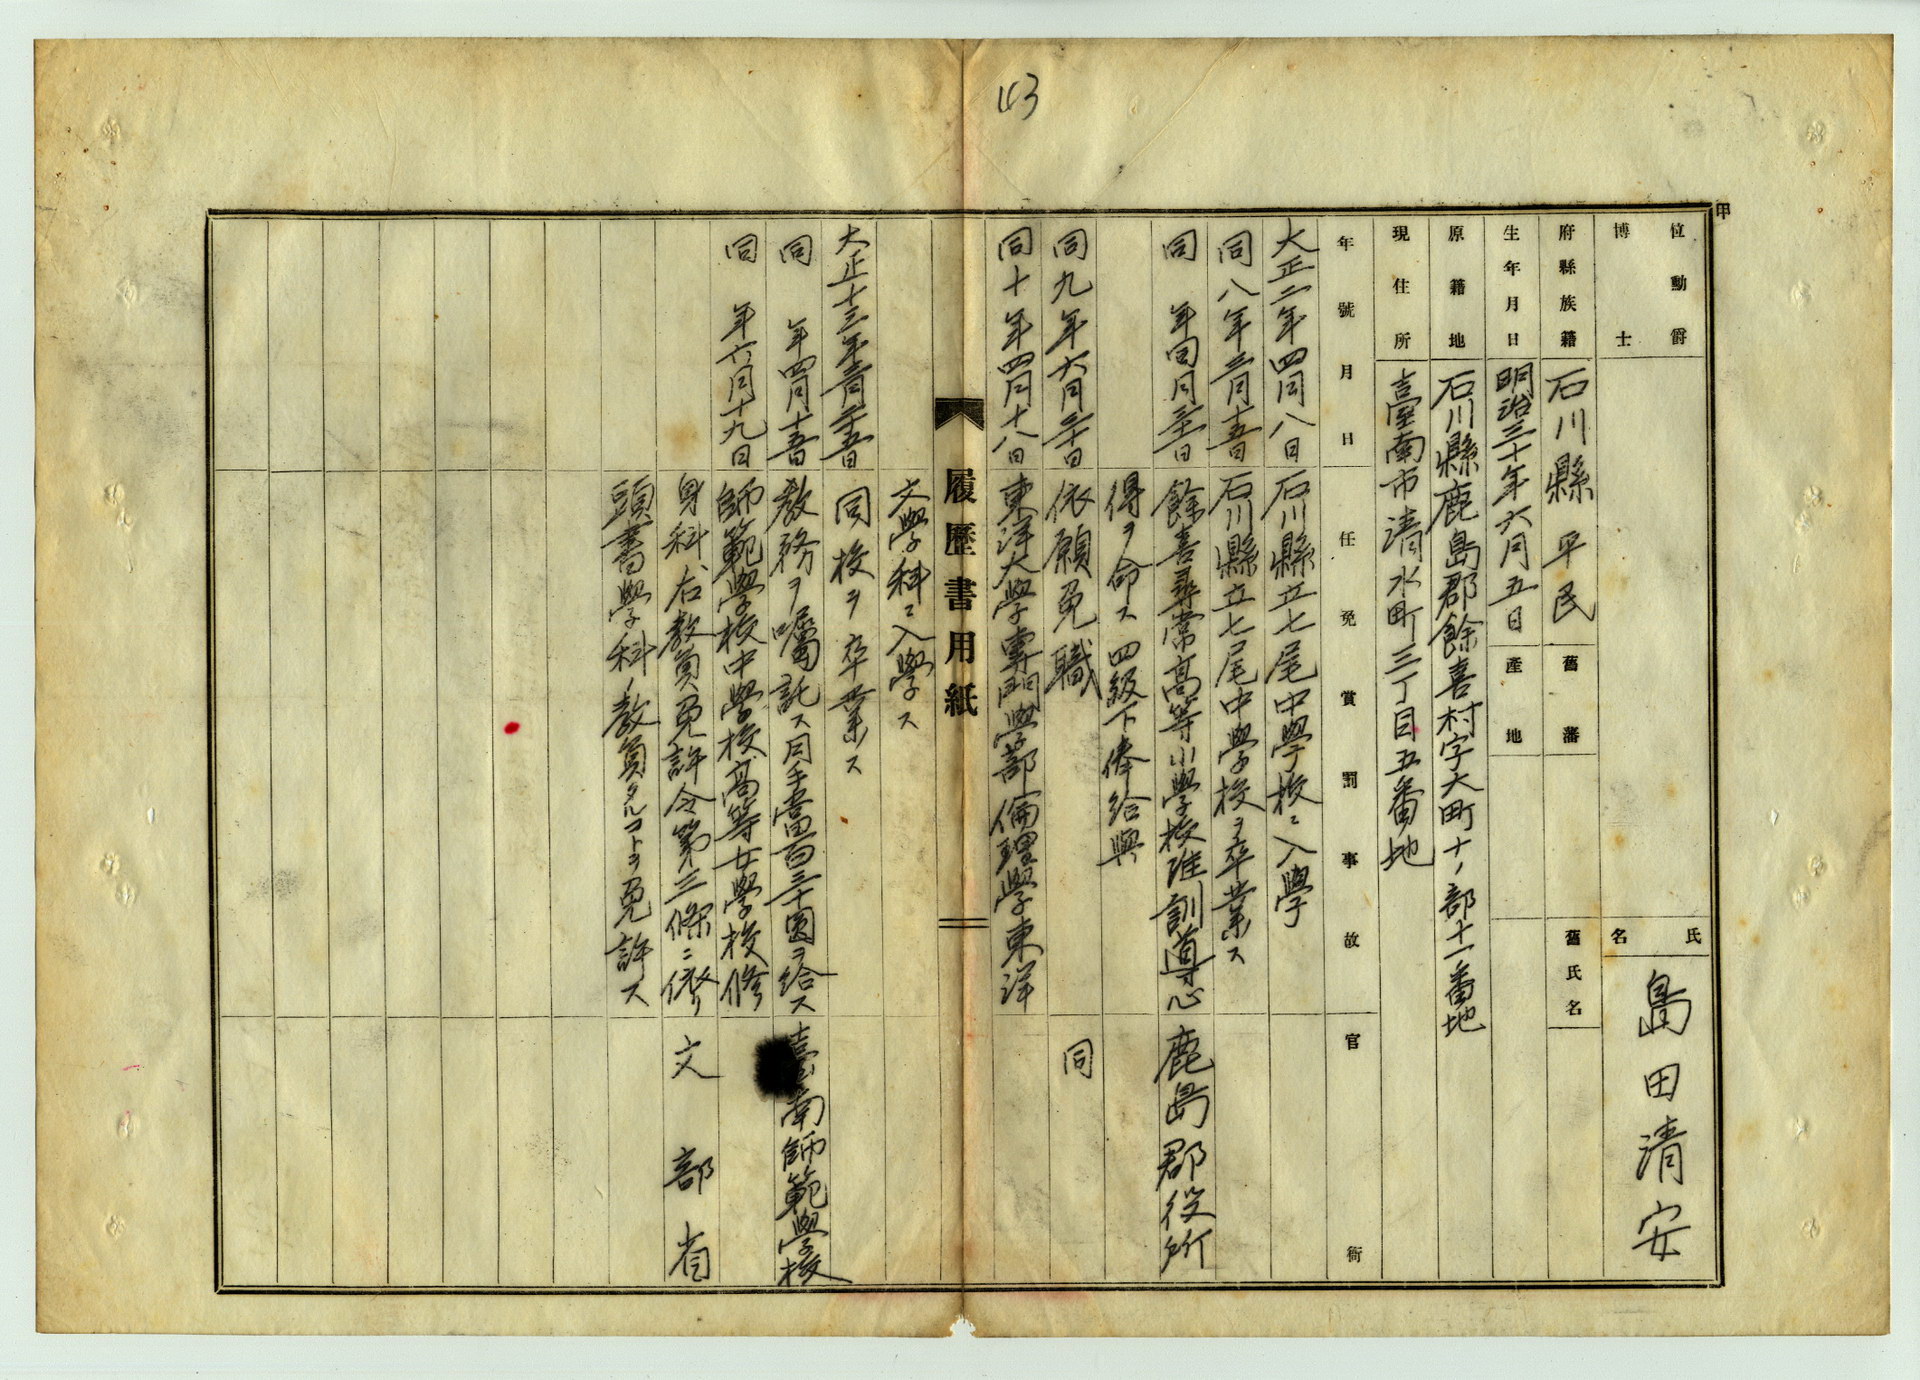 43
甲
位勳爵
博士
氏名
島田清安
府縣族籍
石川縣平民
舊藩
舊氏名
生年月日
明治三十年六月五日
產地
原籍地
石川縣鹿島郡餘喜村字大町ナノ部十一番地
現住所
臺南市清水町三丁目五番地
年號月日
任免賞罰事故
官衙
大正二年四月八日
石川縣立七尾中學校ニ入學
同八年三月十五日
石川縣立七尾中學校ヲ卒業ス
同 年同月三十一日
餘喜尋常高等小學校准訓導心
鹿島郡役所
得ヲ命ス四級下俸給與
同九年六月三十日
依願免職
同
同十年四月十八日
東洋大學專門學部倫理學東洋
履歷書用紙
文學科ニ入學ス
大正十三年三月二十五日
同校ヲ卒業ス
同 年四月十五日
教務ヲ囑託ス月手當百三十圓ヲ給ス
臺南師範學校
同 年六月十九日
師範學校中學校高等女學校修
身科右教員免許令第三條ニ依リ
文部省
頭書學科ノ教員タルコトヲ免許ス